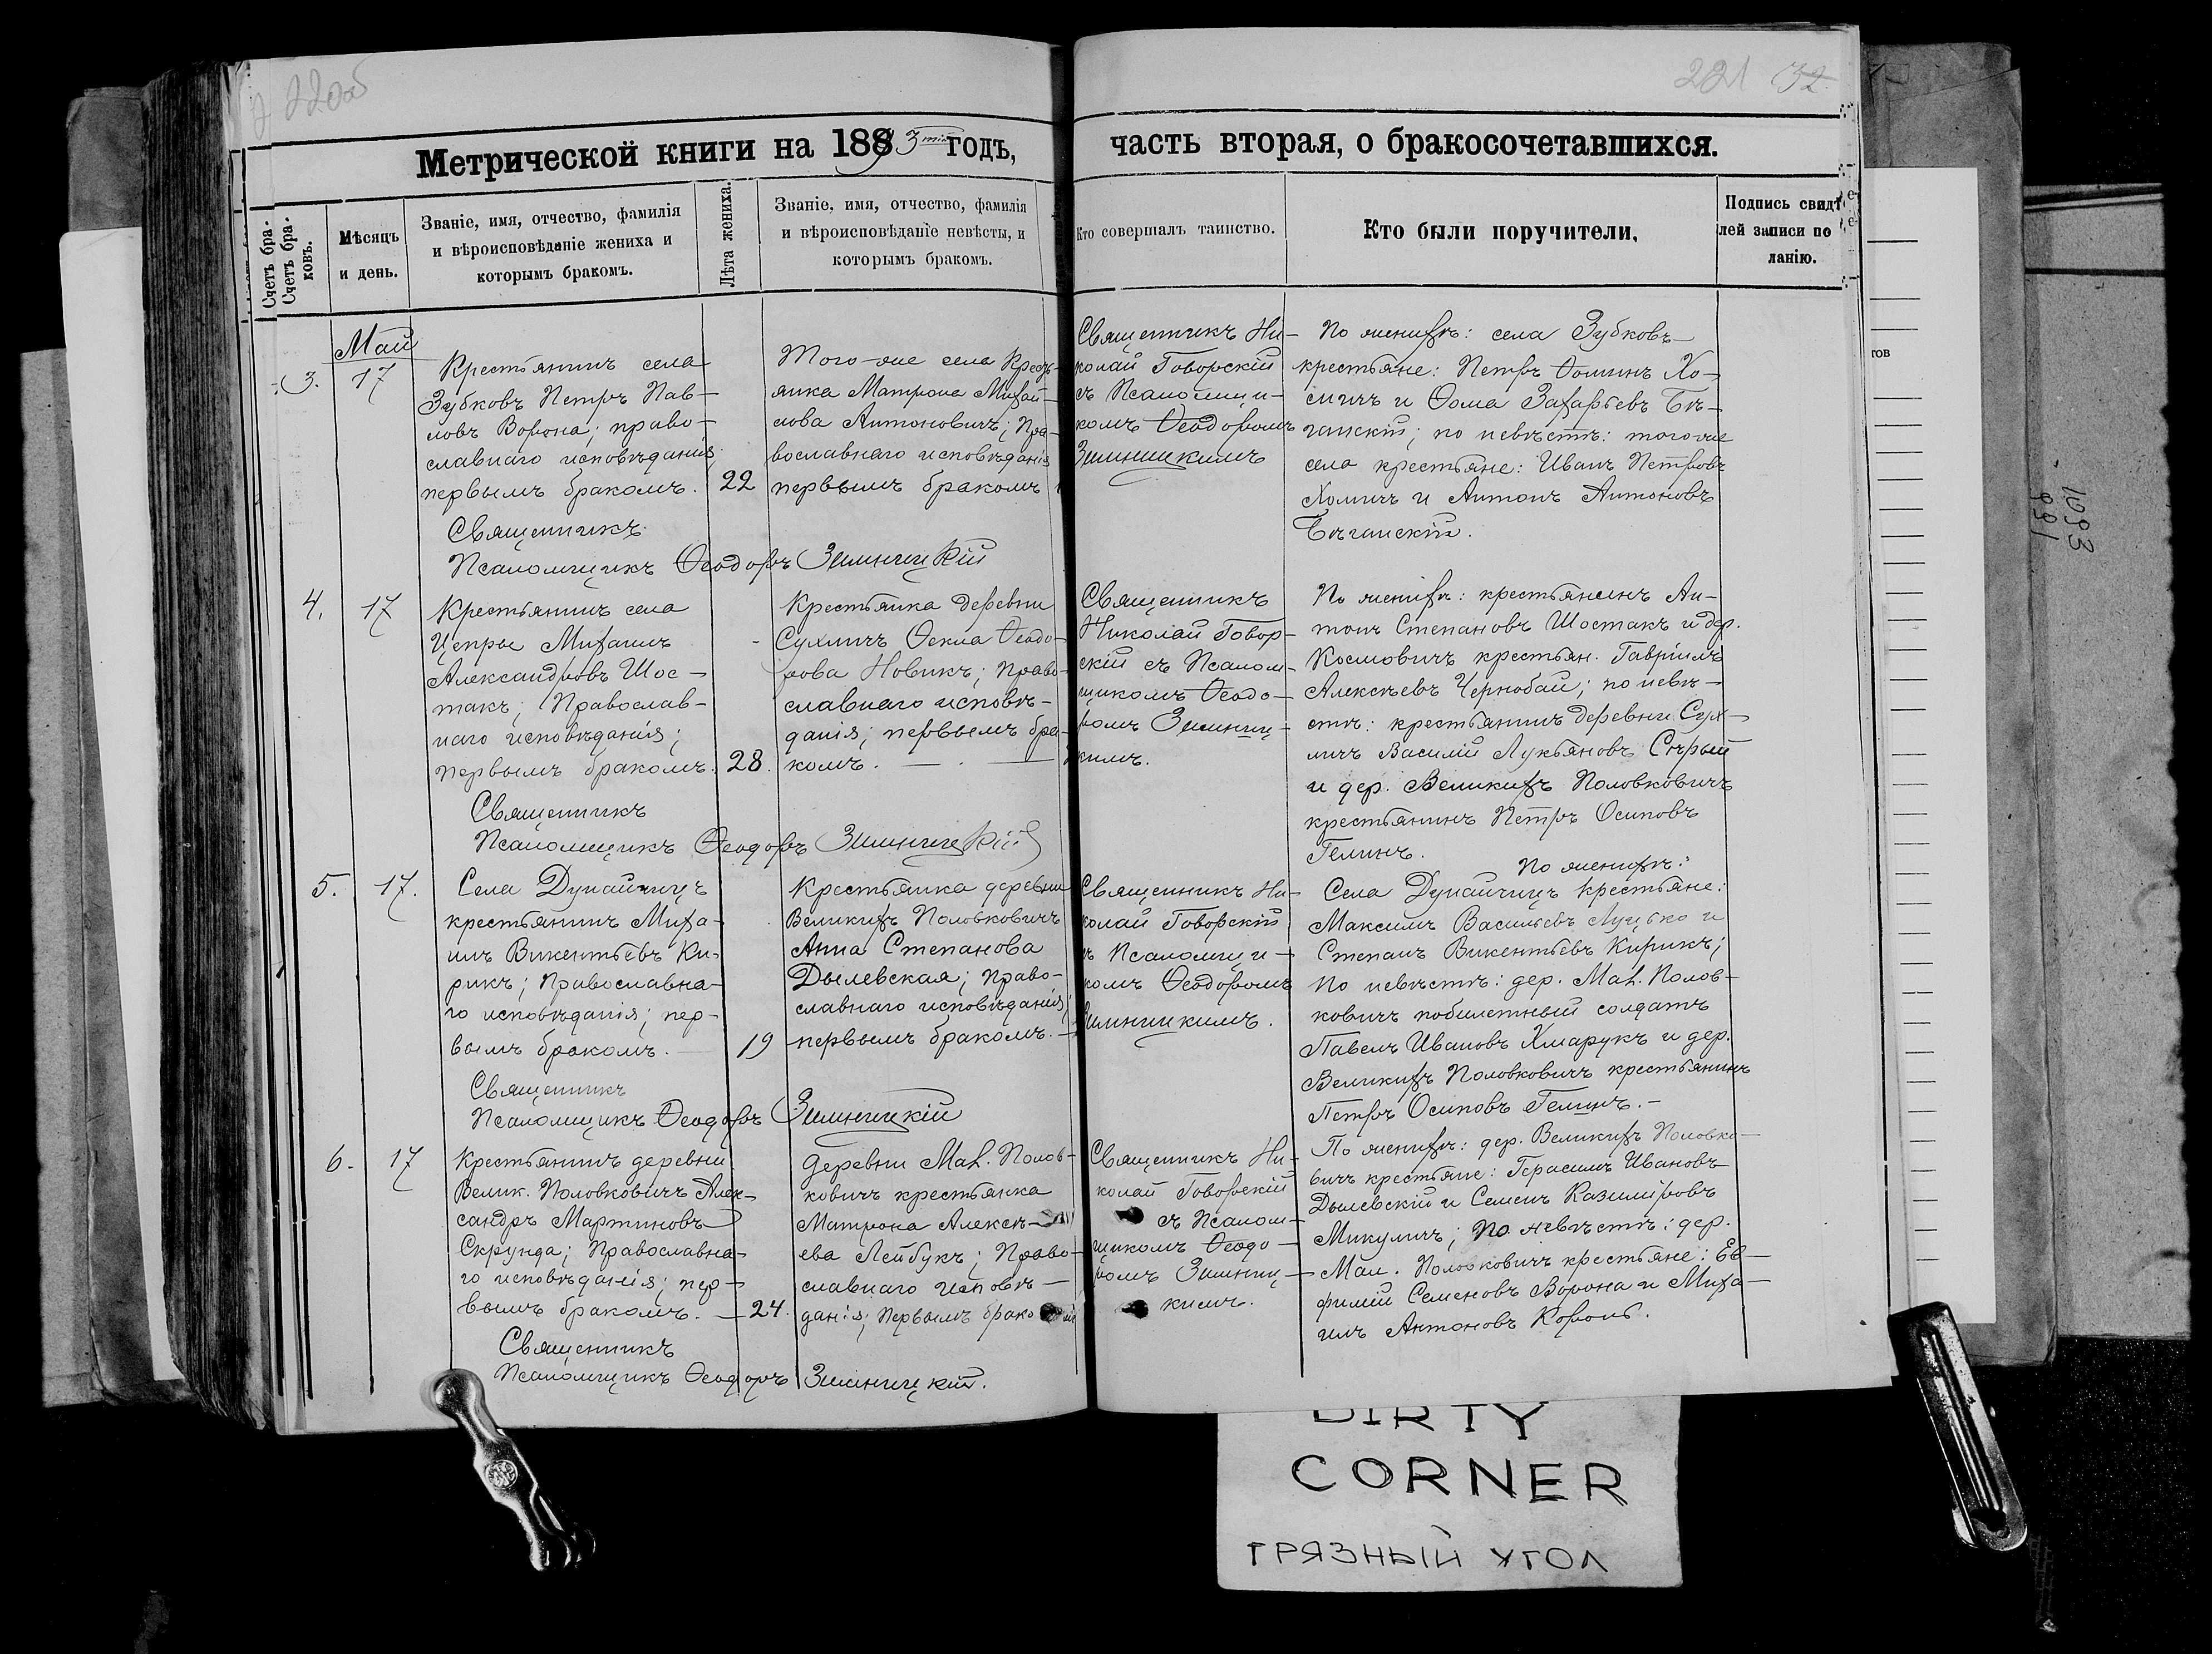 220об
221 32
Метрической книги на 1893 тій годъ,
часть вторая, о бракосочетавшихся.
Счетъ бра-
Счетъ бра-
ковъ.
Мѣсяцъ
и день.
Званіе, имя, отчество, фамилія
и вѣроисповѣданіе жениха и
которымъ бракомъ.
Лѣта жениха.
Званіе, имя, отчество, фамилія
и вѣроисповѣданіе невѣсты, и
которымъ бракомъ.
Кто совершалъ таинство.
Кто были поручители.
Подпись свидѣ
лей записи по
ланію.
Май
3. 17
Крестьянинъ села
Зубковъ Петръ Пав-
ловъ Ворона; право-
славнаго исповѣданія;
первымъ бракомъ.
22
Того-же села Крест-
янка Матрона Михай-
лова Антоновичъ; Пра-
вославнаго исповѣданія
первымъ бракомъ
Священникъ Ни-
колай Говорскій
съ Псаломщи-
комъ Ѳеодоромъ
Зимницкимъ
По женихѣ: села Зубковъ
крестьяне: Петръ Ѳоминъ Хо-
мичъ и Ѳома Захарьевъ Бѣ-
ганскій; по невѣстѣ: того-же
села крестьяне: Иванъ Петровъ
Хомичъ и Антонъ Антоновъ
Бѣганскій.
Священникъ
Псаломщикъ Ѳеодоръ Зимницкій
4. 17
Крестьянинъ села
Цепры Михаилъ
Александровъ Шос-
такъ; Православ-
наго исповѣданія;
первымъ бракомъ.
28.
Крестьянка деревни
Сухличъ Ѳекла Ѳеодо-
рова Новикъ; право-
славнаго исповѣ-
данія; первымъ бра-
комъ.
Священникъ
Николай Говор-
скій съ Псалом-
щикомъ Ѳеодо-
ромъ Зимниц-
кимъ.
По женихѣ: крестьянинъ Ан-
тонъ Степановъ Шостакъ и дер.
Космовичъ крестьян. Гавріилъ
Алексѣевъ Чернобай; по невѣ-
стѣ: крестьянинъ деревни Сух-
личъ Василій Лукьяновъ Сѣрый
и дер. Великихъ Половковичъ
крестьянинъ Петръ Осиповъ
Гелинъ.
Священникъ
Псаломщикъ Ѳеодоръ Зимницкій
5. 17.
Села Дунайчицъ
крестьянинъ Миха-
илъ Викентьевъ Ки-
рикъ; Православна-
го исповѣданія; пер-
вымъ бракомъ.
19
Крестьянка деревни
Великихъ Половковичъ
Анна Степанова
Дылевская; право-
славнаго исповѣданія;
первымъ бракомъ.
Священникъ Ни-
колай Говорскій
съ Псаломщи-
комъ Ѳеодоромъ
Зимницкимъ.
По женихѣ:
Села Дунайчицъ крестьяне:
Максимъ Васильевъ Луцько и
Степанъ Викентьевъ Кирикъ;
по невѣстѣ: дер. Мал. Полов-
ковичъ побилетный солдатъ
Павелъ Ивановъ Хмарукъ и дер.
Великихъ Половковичъ крестьянинъ
Петръ Осиповъ Гелинъ.
Священникъ
Псаломщикъ Ѳеодоръ Зимницкій
6. 17
Крестьянинъ деревни
Велик. Половковичъ Алек-
сандръ Мартиновъ
Скрунда; Православна-
го исповѣданія; пер-
вымъ бракомъ.
24.
Деревни Мал. Полов-
ковичъ крестьянка
Матрона Алексѣ-
ева Лейбукъ; Право-
славнаго исповѣ-
данія; Первымъ брако
Священникъ Ни-
колай Говорскій
съ Псалом-
щикомъ Ѳеодо-
ромъ Зимниц-
кимъ.
По женихѣ: дер. Великихъ Половко-
вичъ крестьяне: Герасимъ Ивановъ
Дылевскій и Семенъ Казиміровъ
Микуличъ; По невѣстѣ: дер.
Мал. Половковичъ крестьяне: Ев-
фимій Семеновъ Ворона и Миха-
илъ Антоновъ Король.
Священникъ
Псаломщикъ Ѳеодоръ Зимницкій.
тов
1093
991
DIRTY
CORNER
ГРЯЗНЫЙ УГОЛ